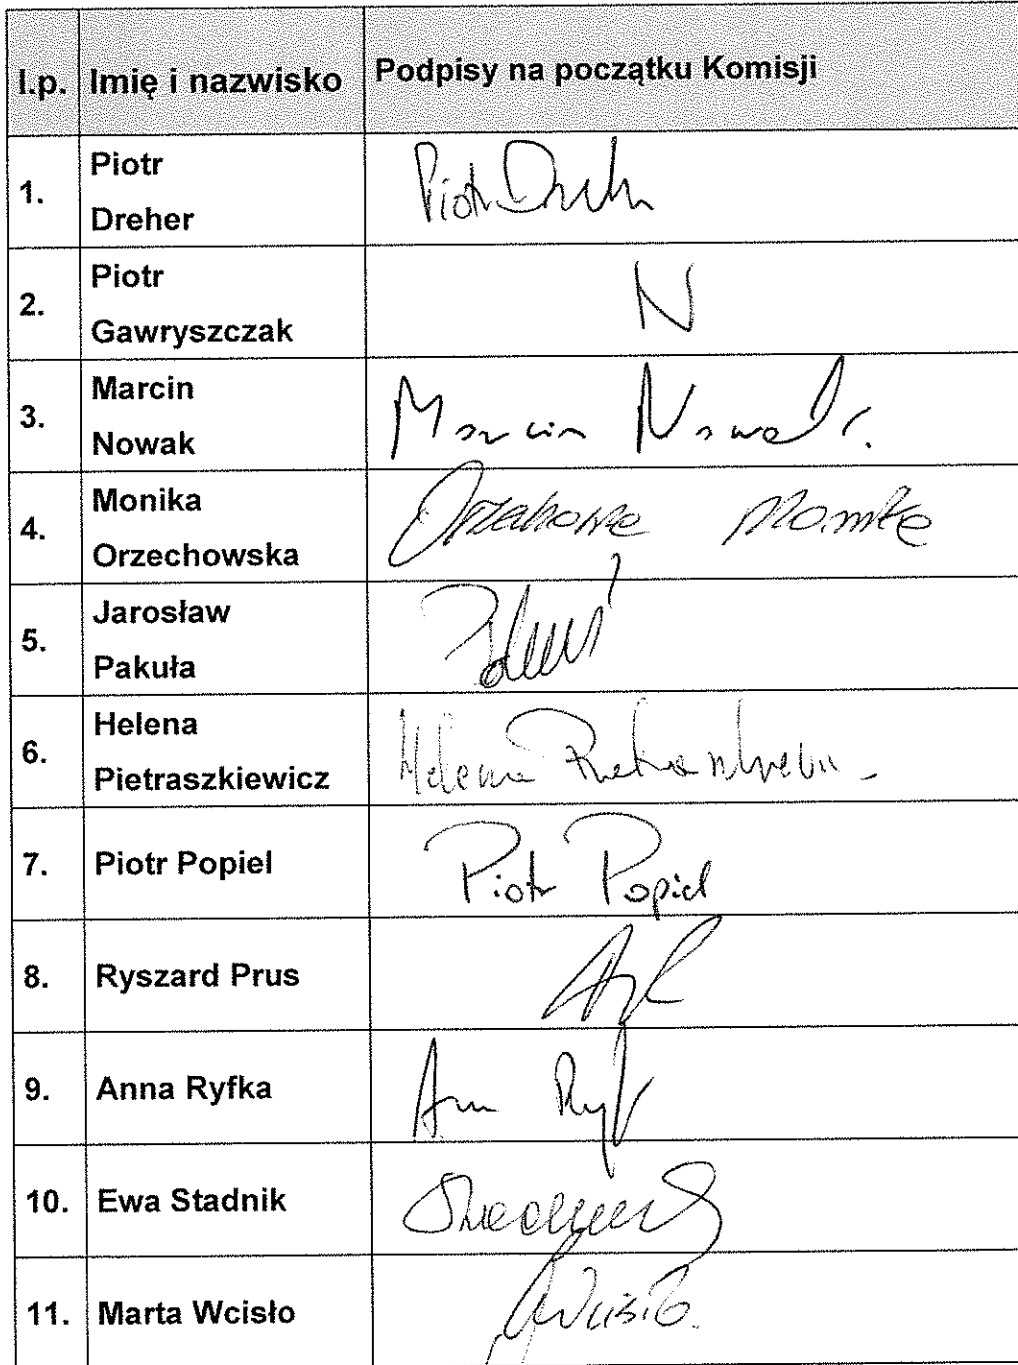 l.p. Imię i nazwisko Podpisy na początku Komisji
1. Piotr Dreher Piotr
2. Piotr Gawryszczak N
3. Marcin Nowak Marcin Nowak
4. Monika Orzechowska Monika
5. Jarosław Pakuła
6. Helena Pietraszkiewicz Helena
7. Piotr Popiel Piotr Popiel
8. Ryszard Prus
9. Anna Ryfka
10. Ewa Stadnik
11. Marta Wcisło Wcisło